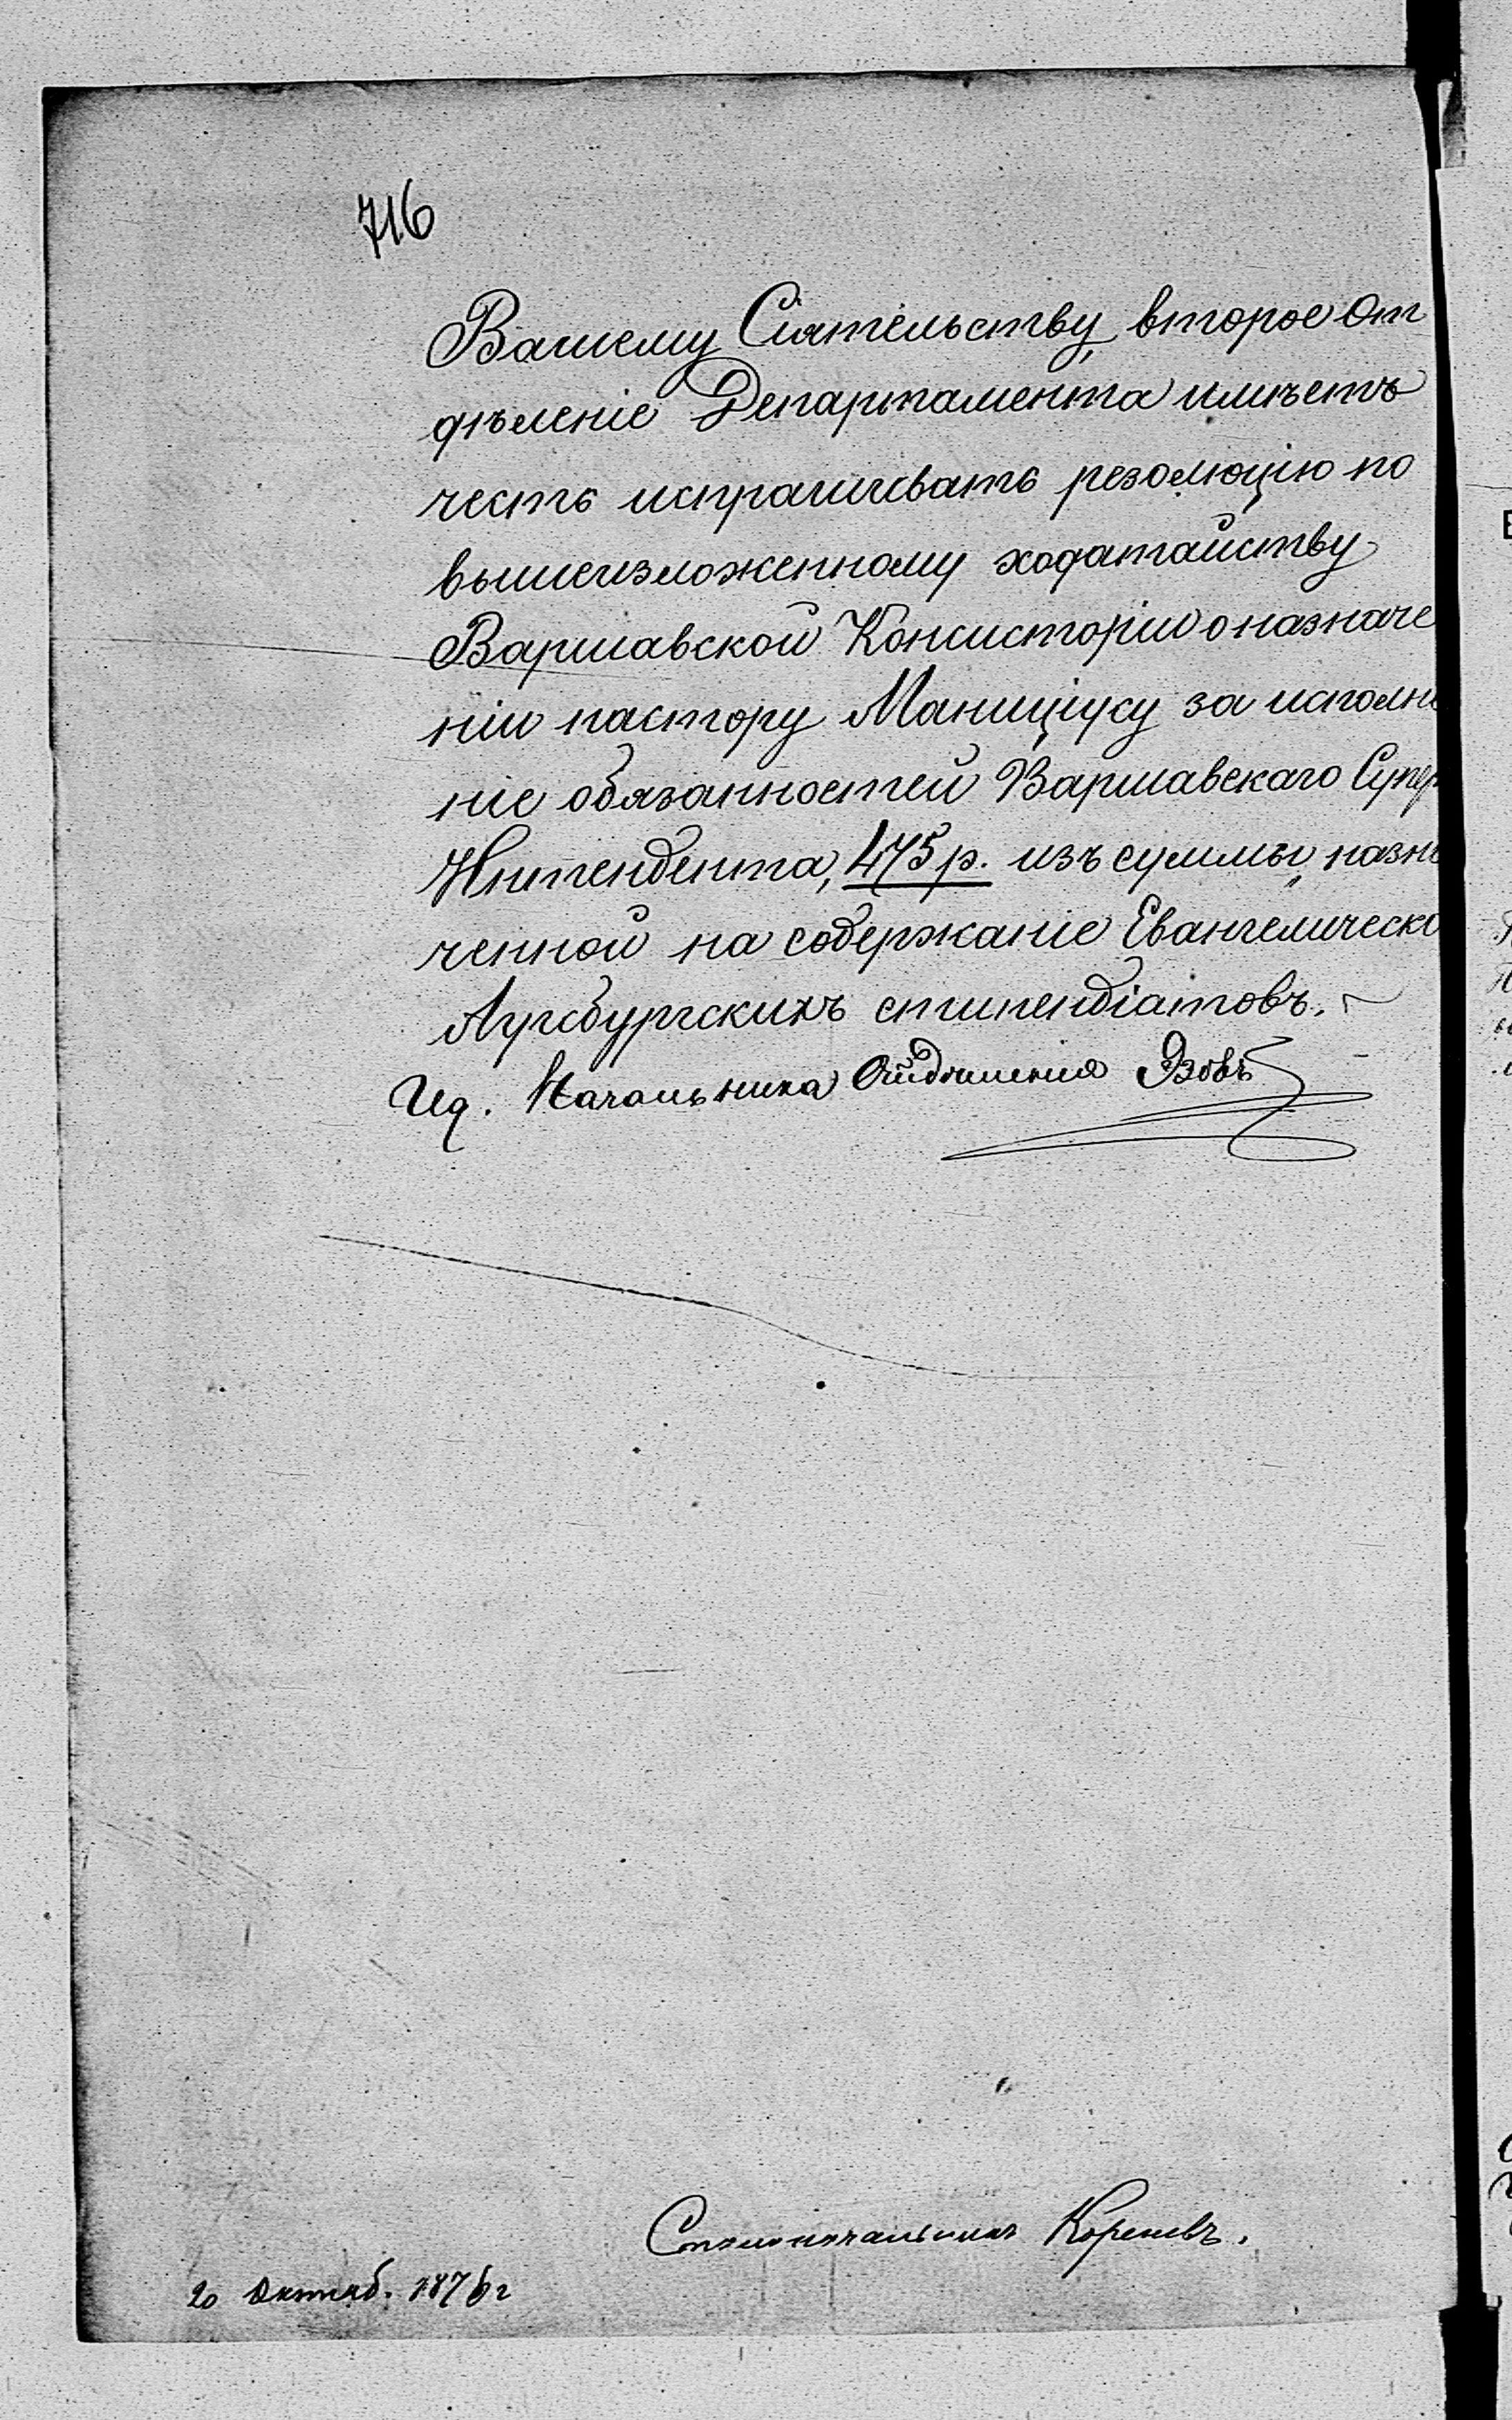 716
Вашему Сіятельству, второе От
дѣленіе Департамента имѣетъ
честь испрашивать резолюцію по
вышеизложенному ходатайству
Варшавской Консисторіи о назначе
ніи пастору Маниціусу за исполне
ніе обязанностей Варшавскаго Супер
Интендента, 475 р. изъ суммы, назна
ченной на содержаніе Евангелическо
Аугсбургскихъ стипендіатовъ.
Ид. Начальника Отдѣленія Язовъ
Столоначальникъ Кореневъ.
20 Октяб. 1876 г